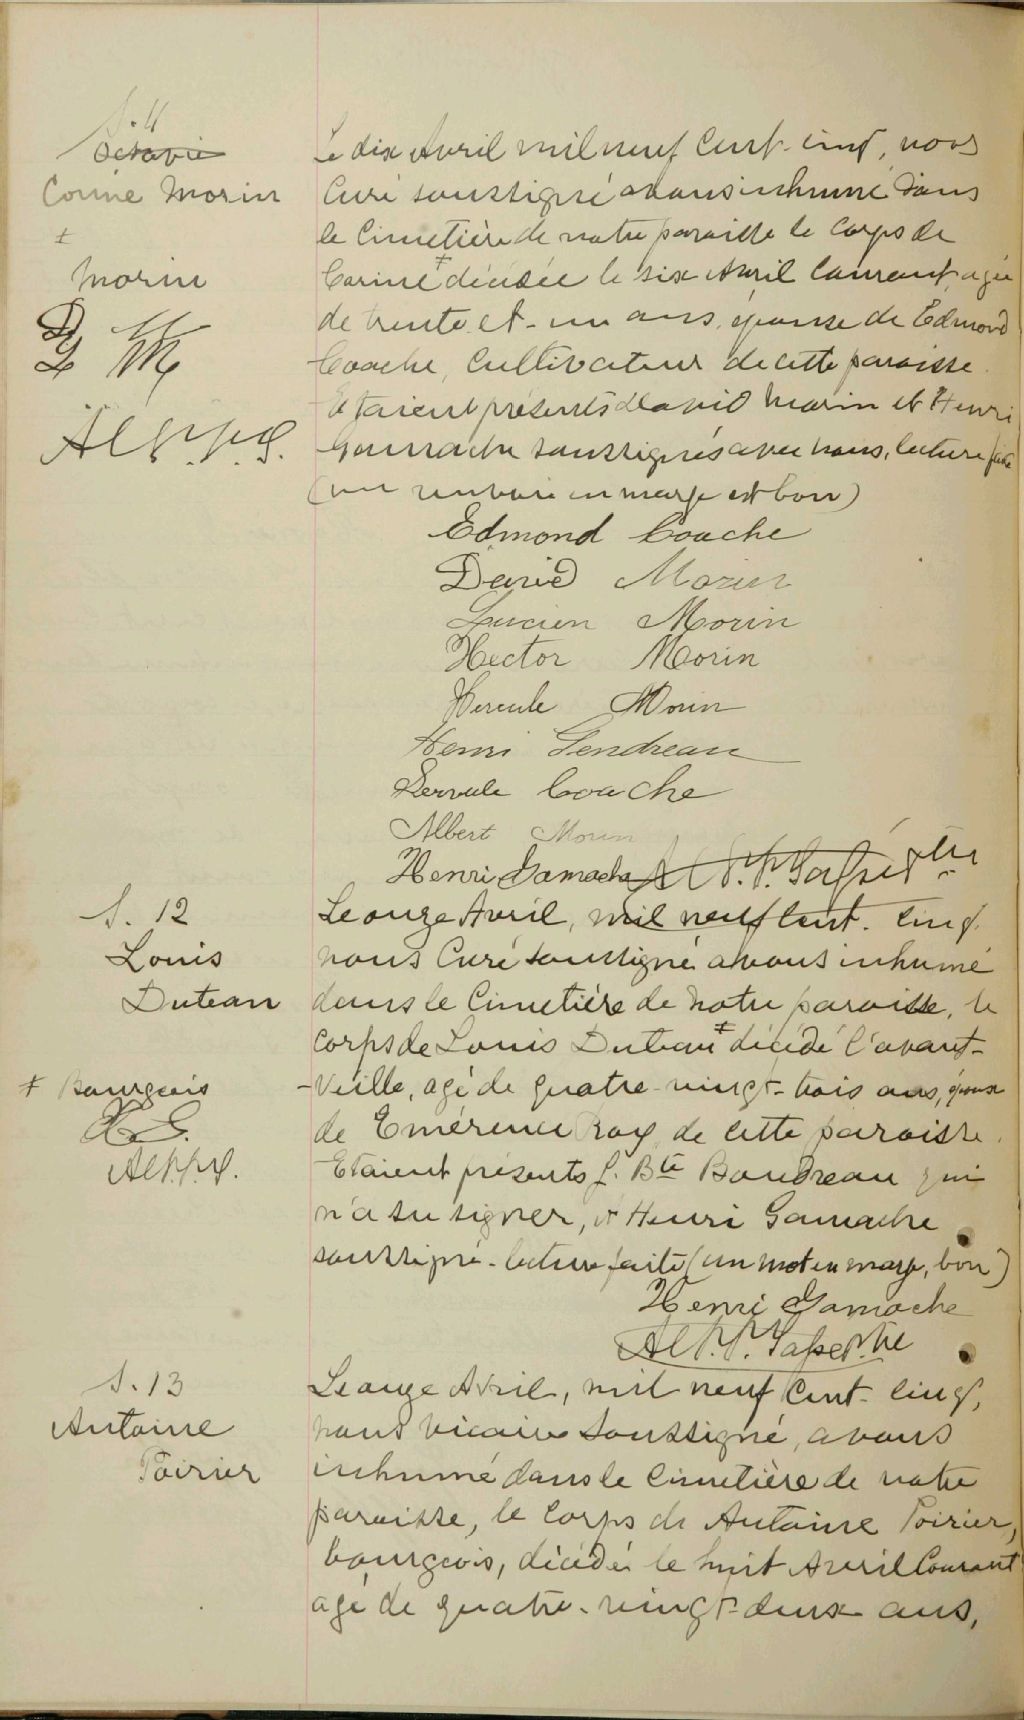 S. 11
Octavie
Corine Morin
‡
Morin
A. L. P. P. S.
Le dix Avril mil neuf cent-cinq, nous
Curé soussigné avons inhumé dans
le Cimetière de notre paroisse le corps de
Corine ‡ décédée le six Avril courant, agée
de trente et-un ans, épouse de Edmond
Couche, Cultivateur de cette paroisse.
Etaient présents David Morin et Henri
Gamache soussignés avec nous, lecture faite
(un renvoi en marge est bon)
Edmond Couche
David Morin
Lucien Morin
Hector Morin
Hercule Morin
Henri Gendreau
Servule Couche
Albert Morin
Henri Gamache
S. 12
Louis
Duteau
‡ Bourgeois
H. G.
Le onze Avril, mil neuf cent-cinq
nous Curé soussigné avons inhumé
dans le Cimetière de notre paroisse, le
corps de Louis Duteau ‡ décédé l'avant-
-veille, agé de quatre-vingt-trois ans, époux
de Emérence Roy de cette paroisse.
Etaient présents J. Bte Boudreau qui
n'a su signer, et Henri Gamache
soussigné. lecture faite (un mot en marge, bon)
Henri Gamache
S. 13
Antoine
Poirier
Le onze Avril, mil neuf cent-cinq,
nous vicaire soussigné, avons
inhumé dans le Cimetière de notre
paroisse, le corps de Antoine Poirier,
bourgeois, décédé le huit Avril Courant
agé de quatre-vingt-deux ans,